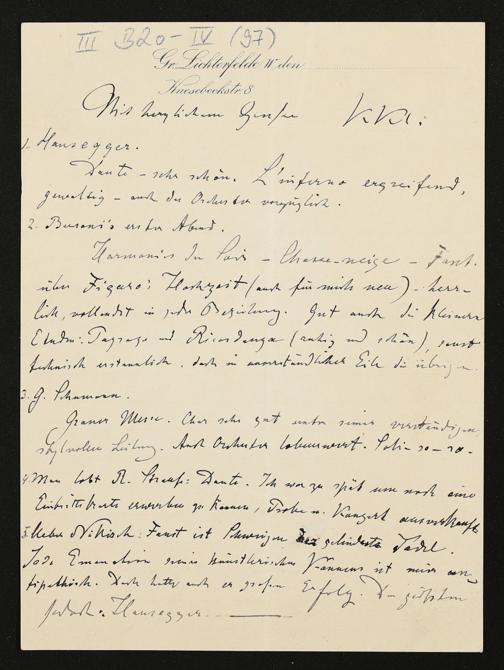 III B20-IV (97)
Gr. Lichterfelde W. den
Knesebeckstr. 8
Mit herzlichem Grusse
1. Hausegger.
Dante – sehr schön. L'inferno ergreifend,
gewaltig – auch das Orchester vorzüglich.
2. Busoni's erster Abend.
Harmonies du Soir – Chasse-neige – Fant.
über Figaro's Hochzeit (auch für mich neu) – herr-
lich, vollendet in jeder Beziehung. Gut auch die kleineren
Etuden: Paysage und Ricordanza (ruhig und schön), sonst
technisch erstaunlich, doch in unverständlicher Eile die übrigen.
3. G. Schumann.
Graner Messe. Chor sehr gut unter seiner verständigen,
stylvollen Leitung. Auch Orchester lobenswert. Soli – so – so.
4. Man lobt R. Strauss: Dante. Ich war zu spät um noch eine
Eintrittskarte erwerben zu können, Probe u. Konzert ausverkauft.
5. Ueber Nikisch: Faust ist Schweigen der gelindeste Tadel.
Jede Emanation seines künstlerischen Könnens ist mir an-
tipathisch. Doch hatte auch er grossen Erfolg.
jedoch: Hausegger.